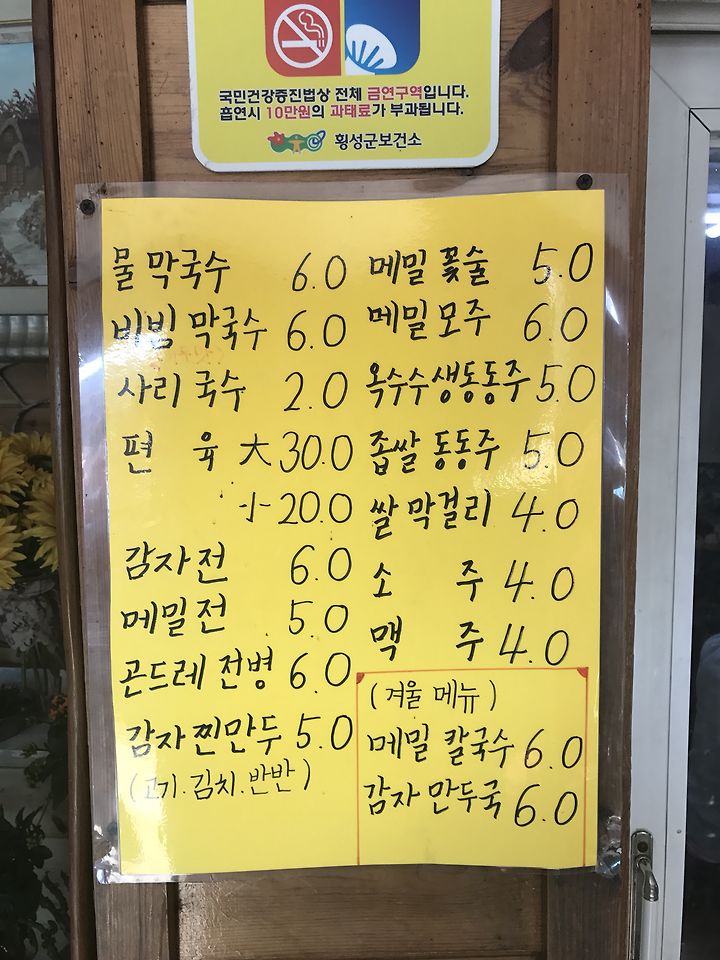 국민건강증진법상 전체 금연구역입니다.
흡연시 10만원의 과태료가 부과됩니다.
횡성군보건소
물 막국수 6.0
비빔 막국수 6.0
사리 국수 2.0
편 육 大 30.0
小 20.0
감자전 6.0
메밀전 5.0
곤드레 전병 6.0
감자찐만두 5.0
(고기.김치.반반)
메밀 꽃술 5.0
메밀 모주 6.0
옥수수생동동주 5.0
좁쌀 동동주 5.0
쌀 막걸리 4.0
소 주 4.0
맥 주 4.0
(겨울 메뉴)
메밀 칼국수 6.0
감자 만두국 6.0